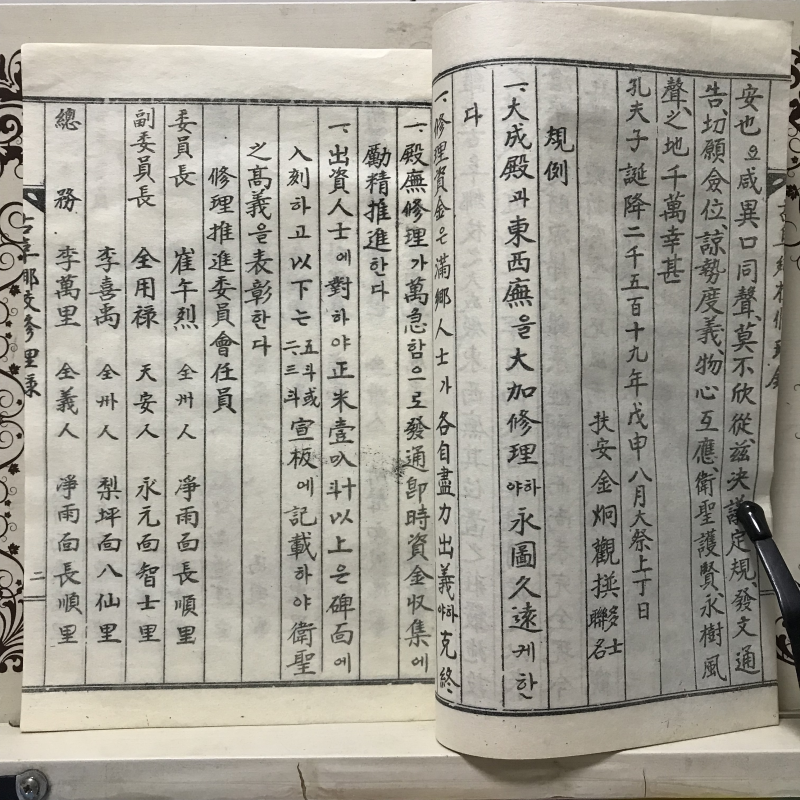 安也오咸異口同聲、莫不欣從、玆決議定規、發文通
告、切願僉位、諒勢度義、物心互應、衛聖護賢、永樹風
聲、之地千萬幸甚
孔夫子誕降二千五百十九年戊申八月大祭上丁日
扶安金炯觀撰 多士聯名
規例
一、大成殿과東西廡을大加修理하야永圖久遠케한
다
一、修理資金은滿鄕人士가各自盡力出義하야克終
一、殿廡修理가萬急함으로發通卽時資金收集에
勵精推進한다
一、出資人士에對하야正米壹叺十斗以上은碑面에
入刻하고以下는五斗或二、三斗宣板에記載하야衛聖
之高義을表彰한다
修理推進委員會任員
委員長 崔午烈 全州人 淨雨面長順里
副委員長 全用祿 天安人 永元面智士里
李喜禹 全州人 梨坪面八仙里
總務 李萬里 全義人 淨雨面長順里
二